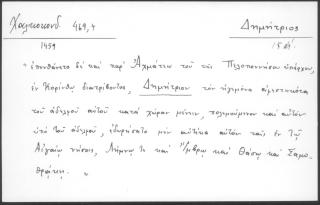 Χαλκοκονδ. 469,4
Δημήτριος
1459
"ἐπυνθάνετο δὲ καὶ παρ' Ἀχμάτεω τοῦ τῆς Πελοποννήσου ὑπάρχου,
ἐν Κορίνθῳ διατρίβοντος, Δημήτριον τὸν ἡγεμόνα
τοῦ ἀδελφοῦ αὐτοῦ κατὰ χώραν μένειν, πολεμούμενον καὶ αὐτὸν
ὑπὸ τοῦ ἀδελφοῦ, ἐδωρήσατο μὲν αὐτίκα αὐτὸν ταῖς ἐν τῷ
Αἰγαίῳ νήσοις, Λήμνῳ τε καὶ Ἴμβρῳ καὶ Θάσῳ καὶ Σαμο-
θρᾴκῃ.